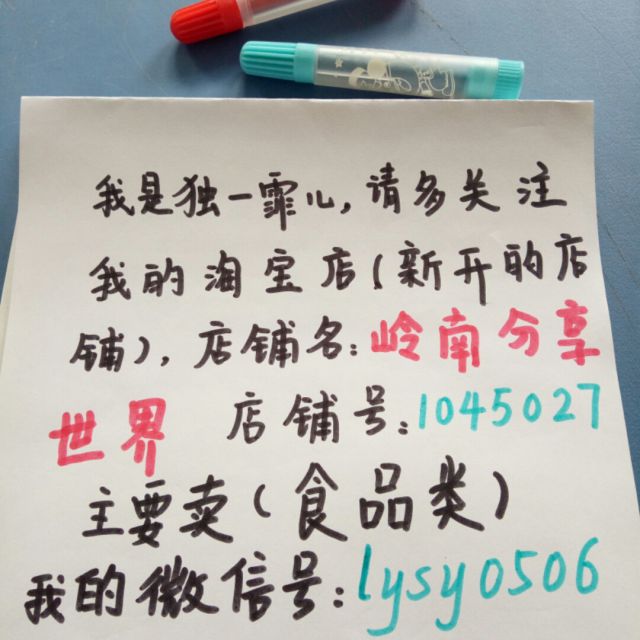 我是独一霏儿,请多关注
我的淘宝店(新开的店
铺),店铺名:岭南分享
世界 店铺号:1045027
主要卖(食品类)
我的微信号:lysy0506